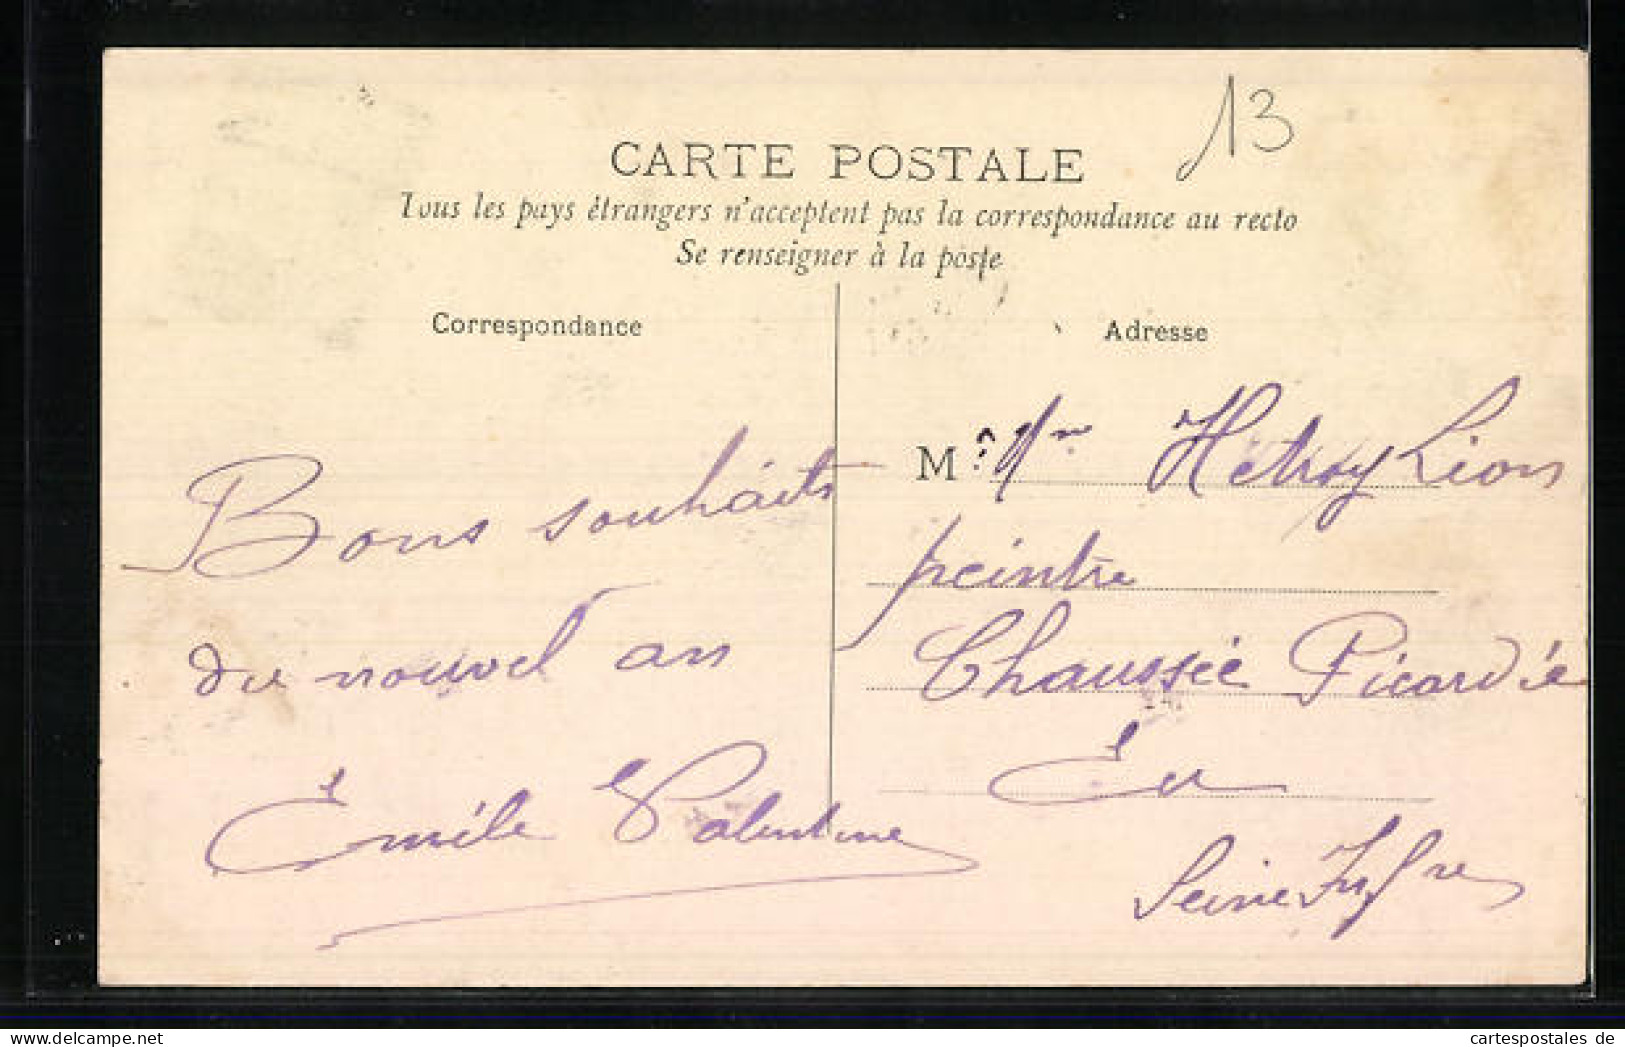 13
CARTE POSTALE
Tous les pays étrangers n'acceptent pas la correspondance au recto
Se renseigner à la poste
Correspondance
Bons souhaits
du nouvel an
Émile Valentine
Adresse
M Mr Hetroy Léon
peintre
Chaussée Picardie
Eu
Seine Infre
cartespostales de